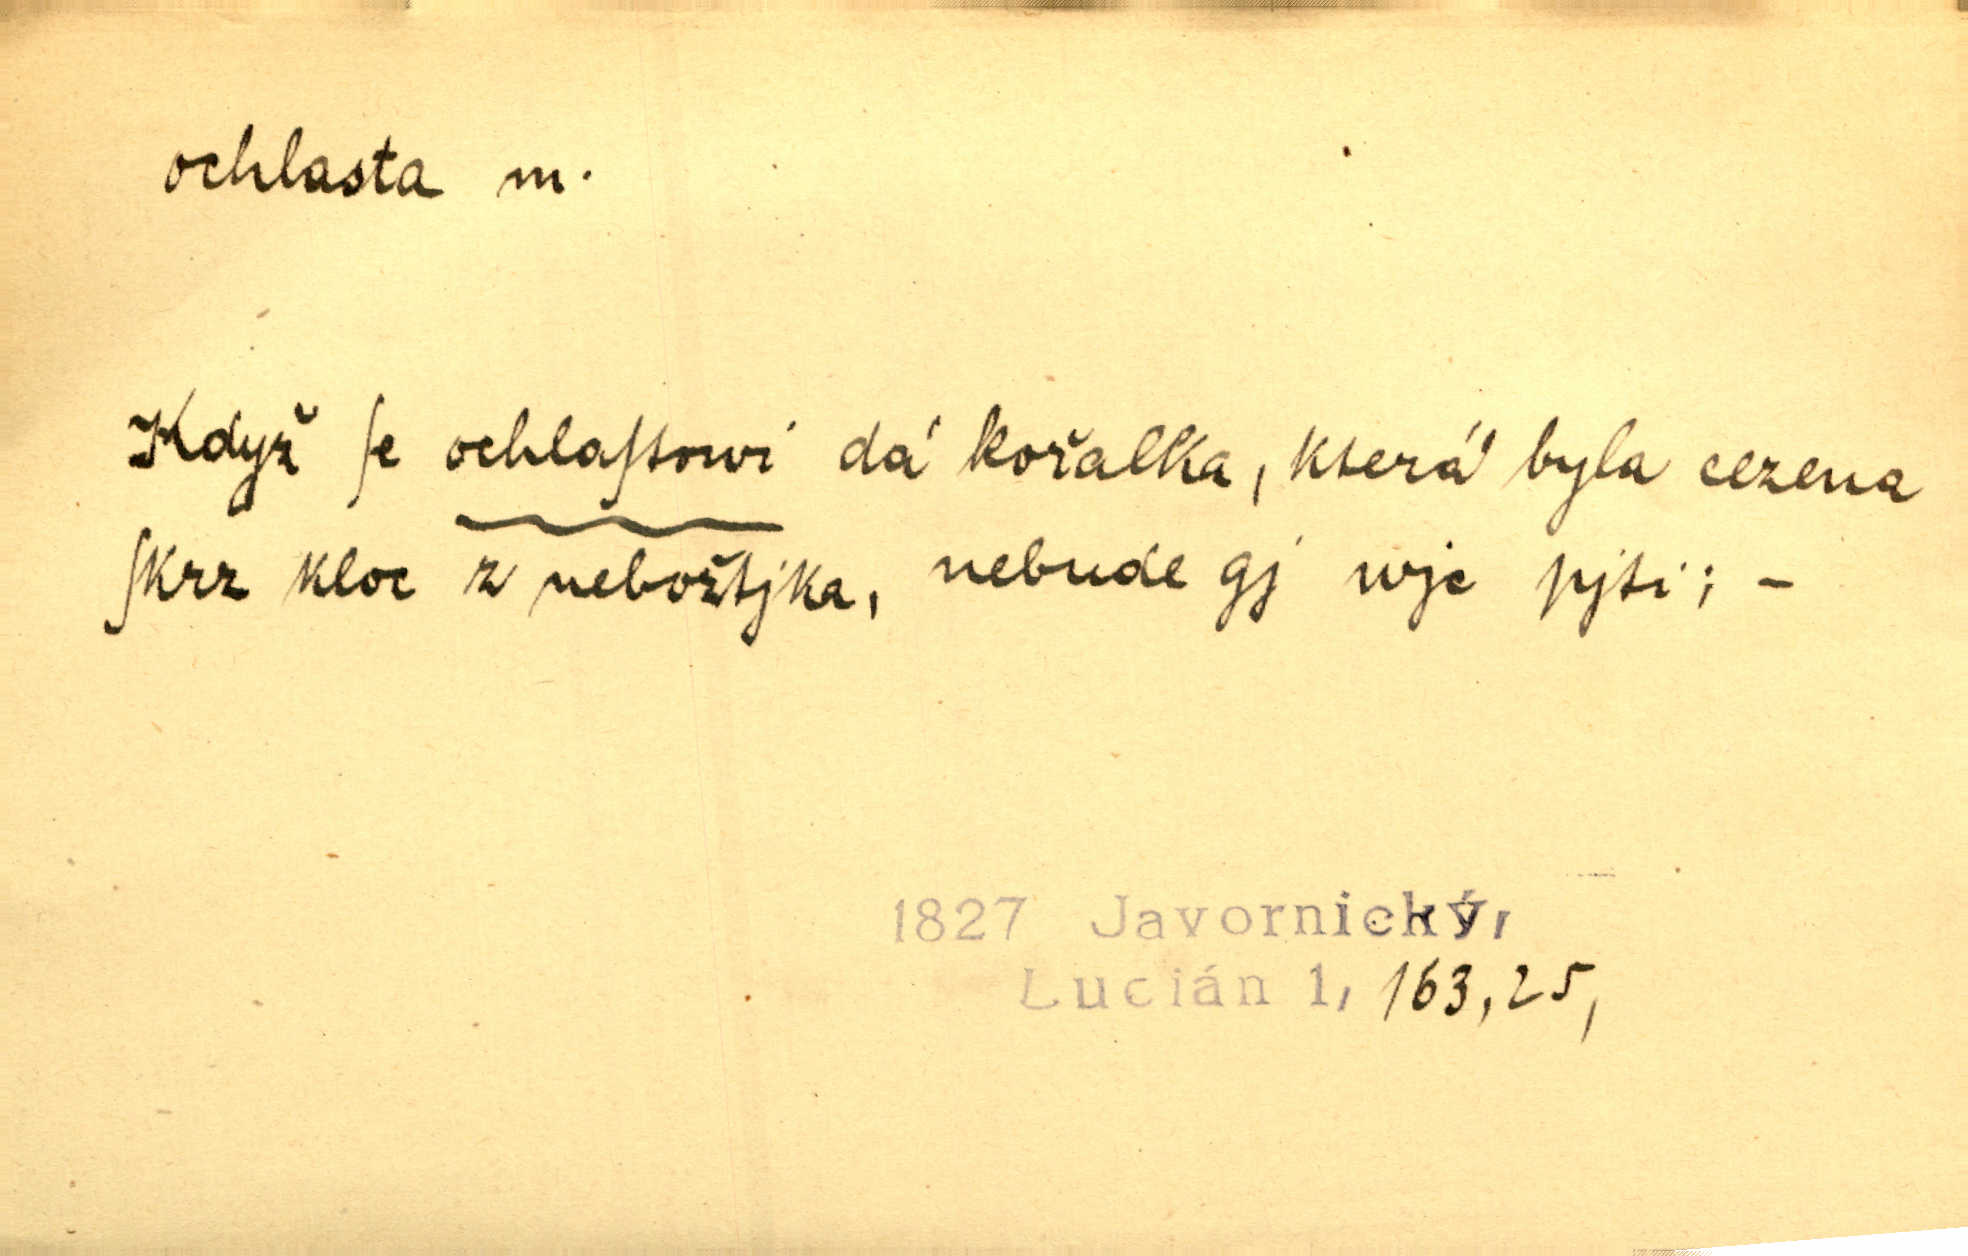 ochlasta m.
Když ſe ochlaſtowi dá kořalka, která byla cezena
ſkrz kloc z nebožtjka, nebude gj wjc pjti; -
1827 Javornický,
Lucián 1, 163, 25,